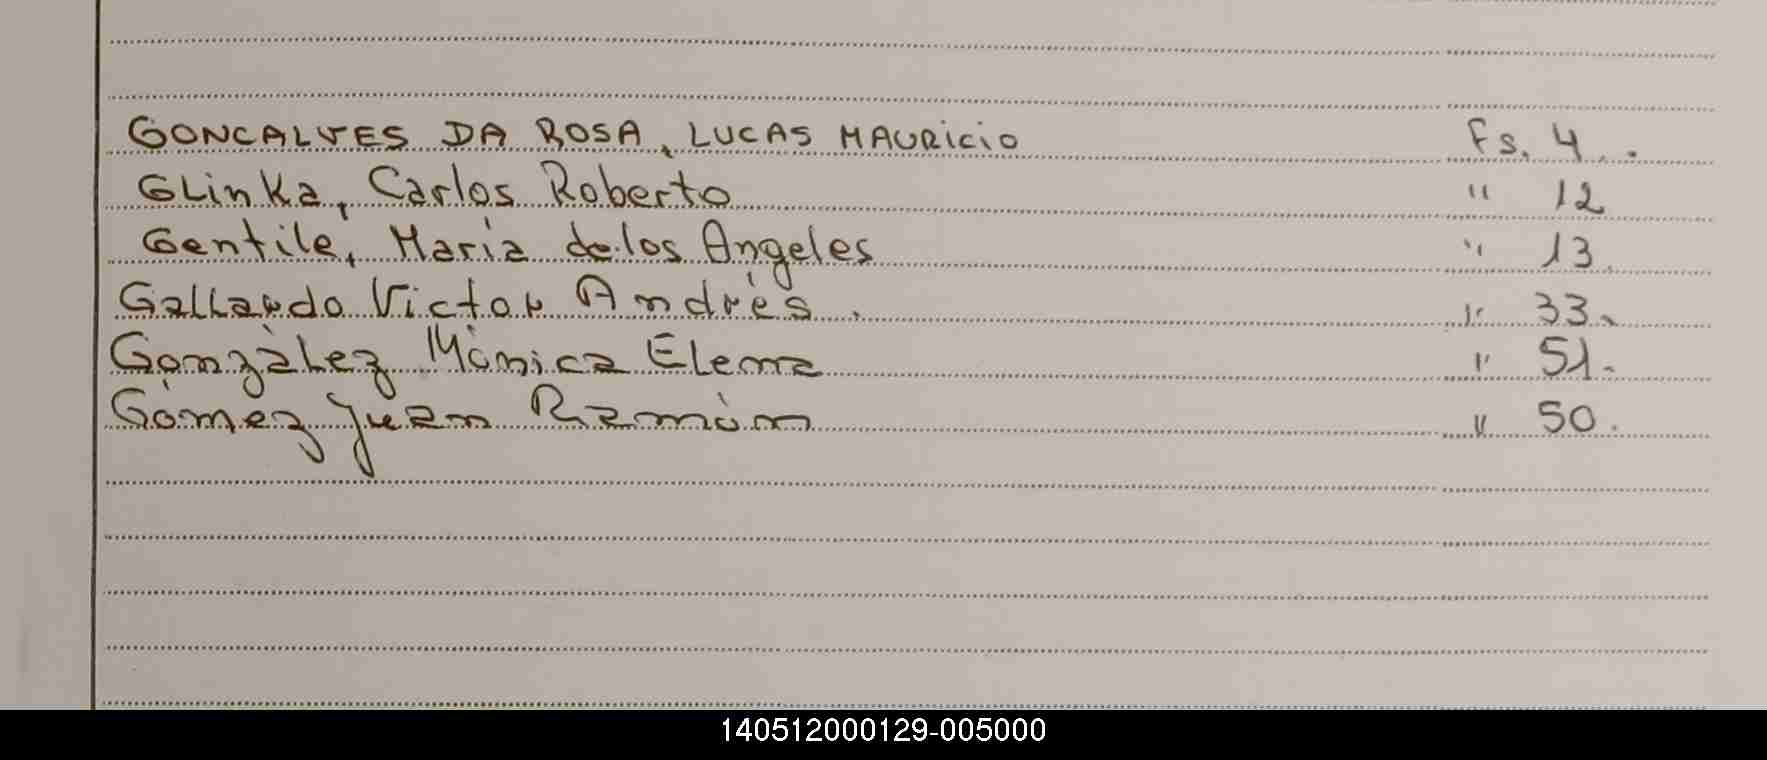 GONCALVES DA ROSA, LUCAS MAURICIO Fs. 4.
GLinka, Carlos Roberto " 12
Gentile, María de los Angeles " 13.
Gallardo Victor Andrés. " 33.
Gonzàlez Mònica Elena " 51.
Gómez Juan Ramòn " 50.
140512000129-005000